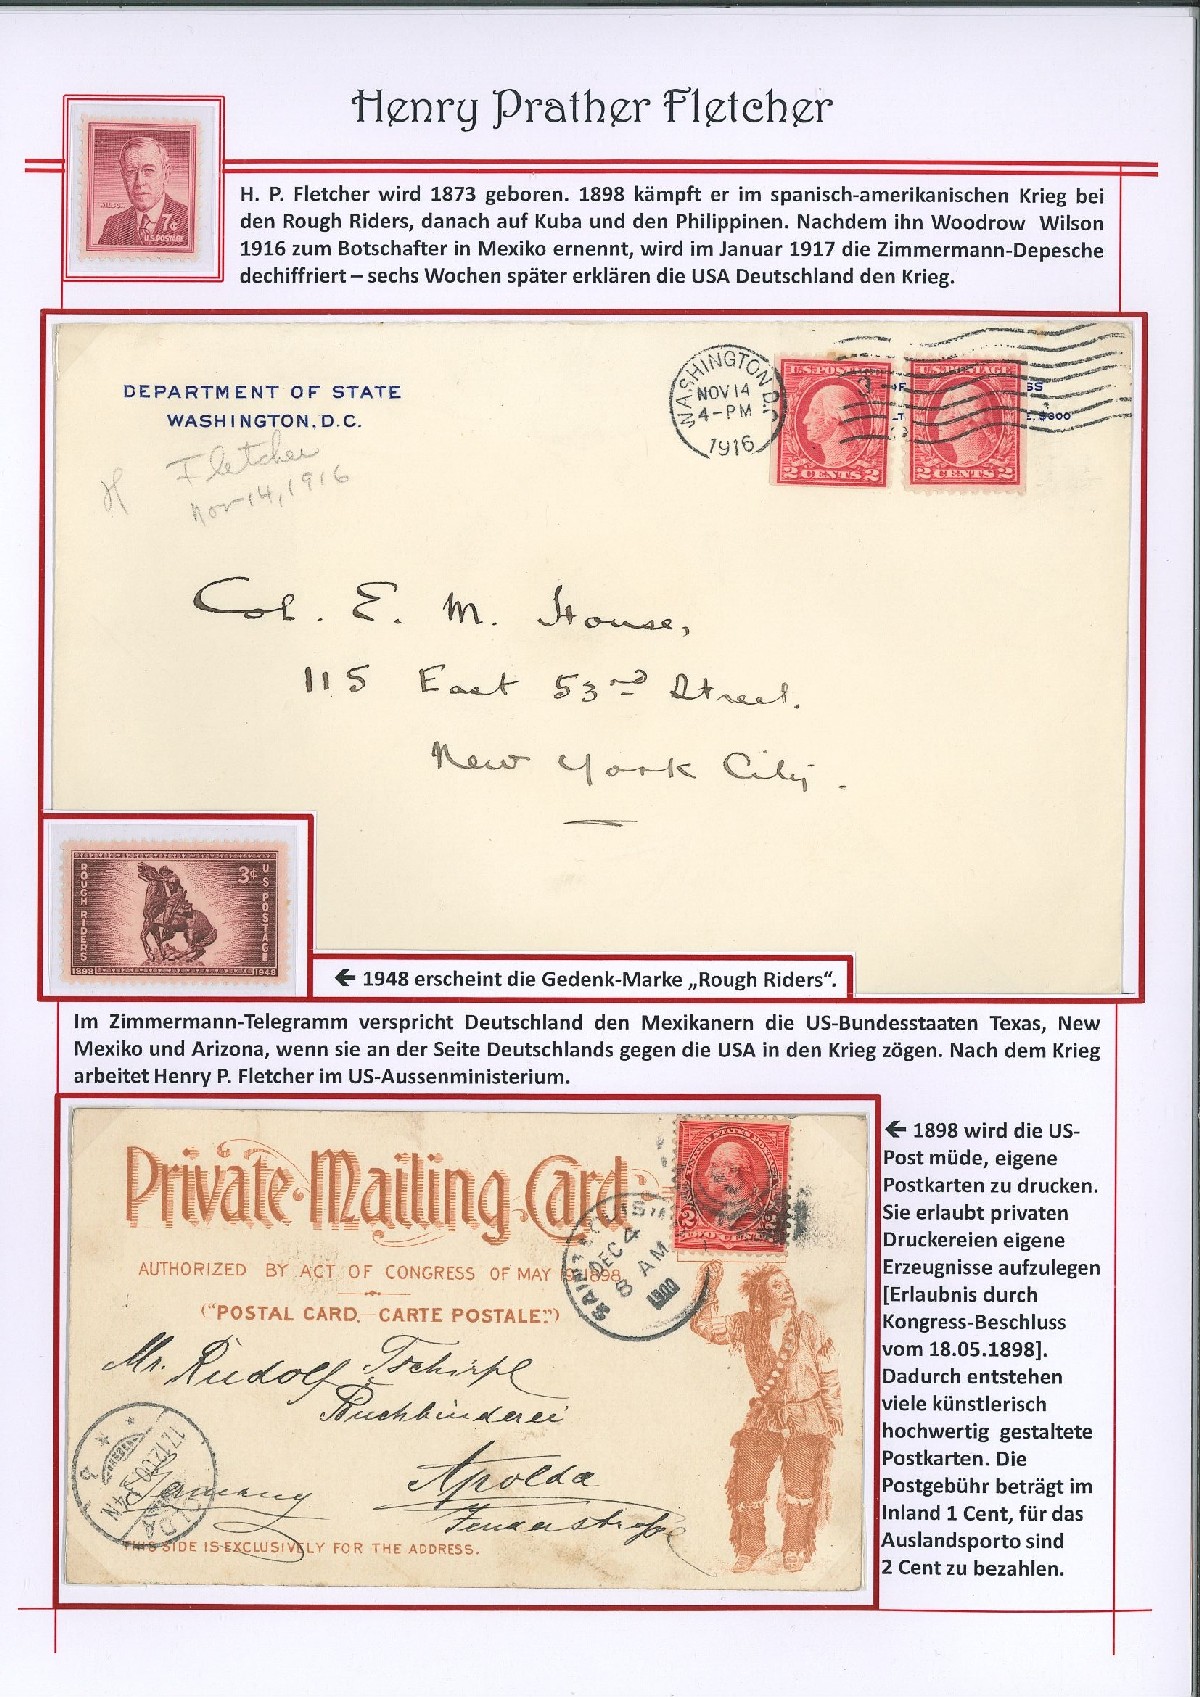 Henry Prather Fletcher
WILSON
7¢
U.S. POSTAGE
H. P. Fletcher wird 1873 geboren. 1898 kämpft er im spanisch-amerikanischen Krieg bei
den Rough Riders, danach auf Kuba und den Philippinen. Nachdem ihn Woodrow Wilson
1916 zum Botschafter in Mexiko ernennt, wird im Januar 1917 die Zimmermann-Depesche
dechiffriert – sechs Wochen später erklären die USA Deutschland den Krieg.
DEPARTMENT OF STATE
WASHINGTON, D.C.
Fletcher
Nov 14, 1916
WASHINGTON, D.C.
NOV 14
4-PM
1916
U.S. POSTAGE
2 CENTS 2
U.S. POSTAGE
2 CENTS 2
$300
Col. E. M. House,
115 East 53rd Street.
New York City.
ROUGH RIDERS
3¢
U.S. POSTAGE
1898 1948
← 1948 erscheint die Gedenk-Marke „Rough Riders“.
Im Zimmermann-Telegramm verspricht Deutschland den Mexikanern die US-Bundesstaaten Texas, New
Mexiko und Arizona, wenn sie an der Seite Deutschlands gegen die USA in den Krieg zögen. Nach dem Krieg
arbeitet Henry P. Fletcher im US-Aussenministerium.
Private Mailing Card
AUTHORIZED BY ACT OF CONGRESS OF MAY 19, 1898
("POSTAL CARD, CARTE POSTALE")
DEC 4
8 AM
1900
TWO CENTS
Mr. Rudolf Tschirpl
Buchbinderei
Apolda
Germany
THIS SIDE IS EXCLUSIVELY FOR THE ADDRESS.
← 1898 wird die US-
Post müde, eigene
Postkarten zu drucken.
Sie erlaubt privaten
Druckereien eigene
Erzeugnisse aufzulegen
[Erlaubnis durch
Kongress-Beschluss
vom 18.05.1898].
Dadurch entstehen
viele künstlerisch
hochwertig gestaltete
Postkarten. Die
Postgebühr beträgt im
Inland 1 Cent, für das
Auslandsporto sind
2 Cent zu bezahlen.